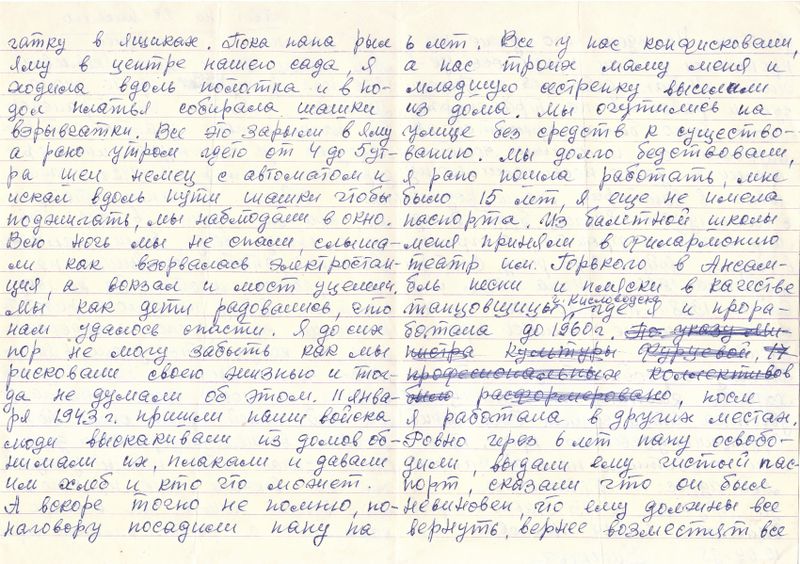 гатку в ящиках. Пока папа рыл
яму в центре нашего сада, я
ходила вдоль полотна и в по-
дол платья собирала шашки
взрывчатки. Все это зарыли в яму
а рано утром где то от 4 до 5 ут-
ра шел немец с автоматом и
искал вдоль пути шашки чтобы
поджигать, мы наблюдали в окно.
Всю ночь мы не спали, слыша-
ли как взорвалась электростан-
ция, а вокзал и мост уцелели.
Мы как дети радовались, что
нам удалось спасти. Я до сих
пор не могу забыть как мы
рисковали своею жизнью и тог-
да не думали об этом. 11 янва-
ря 1943 г. пришли наши войска
люди выскакивали из домов об-
нимали их, плакали и давали
им хлеб и кто что может.
А вскоре точно не помню, по-
наговору посадили папу на
6 лет. Все у нас конфисковали,
а нас троих маму меня и
младшую сестренку выселили
из дома. Мы очутились на
улице без средств к существо-
ванию. Мы долго бедствовали,
я рано пошла работать, мне
было 15 лет, я еще не имела
паспорта. Из балетной школы
меня приняли в Филармонию
театр им. Горького в Ансам-
бль песни и пляски в качестве
танцовщицы г. Кисловодска, где я и прора-
ботала до 1960 г. По указу Ми-
нистра культуры Фурцевой, 17
професиональных коллективов
было расформировано, после
я работала в других местах.
Ровно через 6 лет папу освобо-
дили выдали ему чистый пас-
порт, сказали что он был
невиновен что ему должны все
вернуть, вернее возместят все